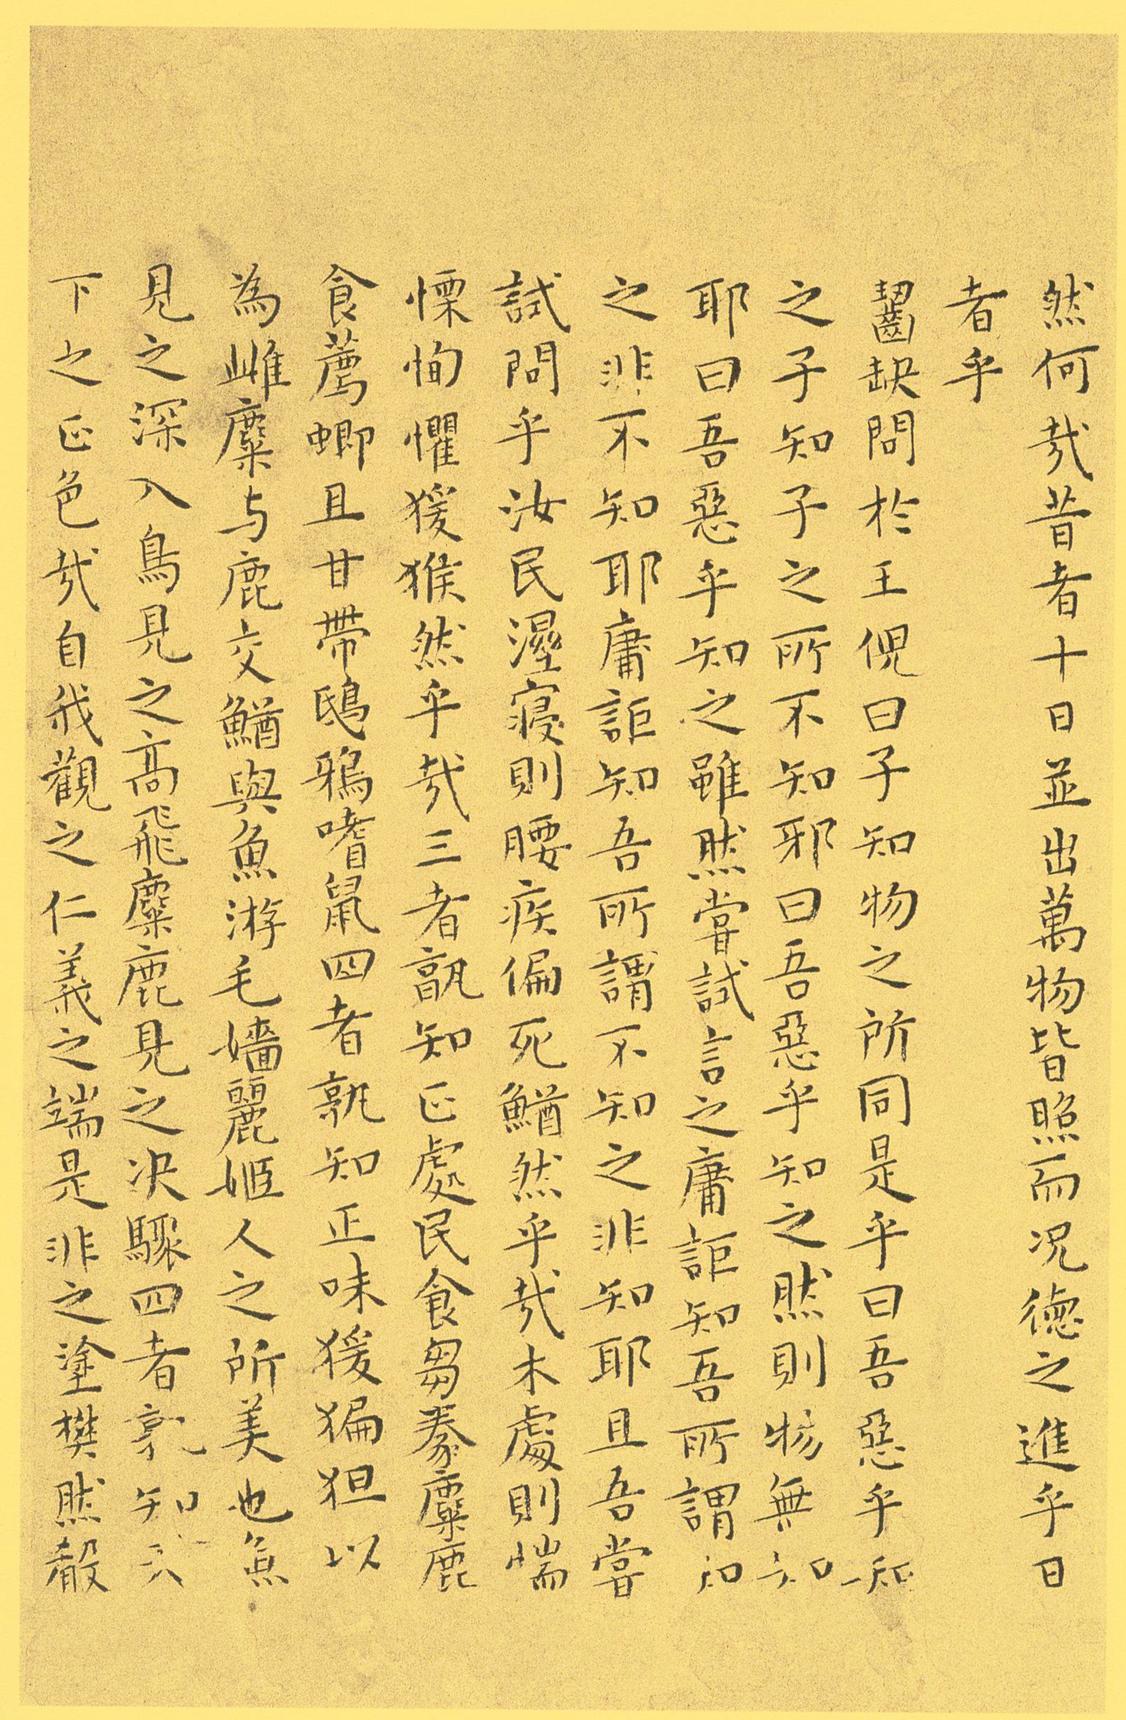 然何哉昔者十日並出萬物皆照而况德之進乎日
者乎
齧缺問於王倪曰子知物之所同是乎曰吾惡乎知
之子知子之所不知邪曰吾惡乎知之然則物無知
耶曰吾惡乎知之雖然嘗試言之庸詎知吾所謂知
之非不知耶庸詎知吾所謂不知之非知耶且吾嘗
試問乎汝民溼寢則腰疾偏死鰌然乎哉木處則惴
慄恂懼猨猴然乎哉三者孰知正處民食芻豢麋鹿
食薦蝍且甘帶鴟鴉嗜鼠四者孰知正味猨猵狚以
為雌麋与鹿交鰌與魚游毛嬙麗姬人之所美也魚
見之深入鳥見之高飛麋鹿見之决驟四者孰知天
下之正色哉自我觀之仁義之端是非之塗樊然殽